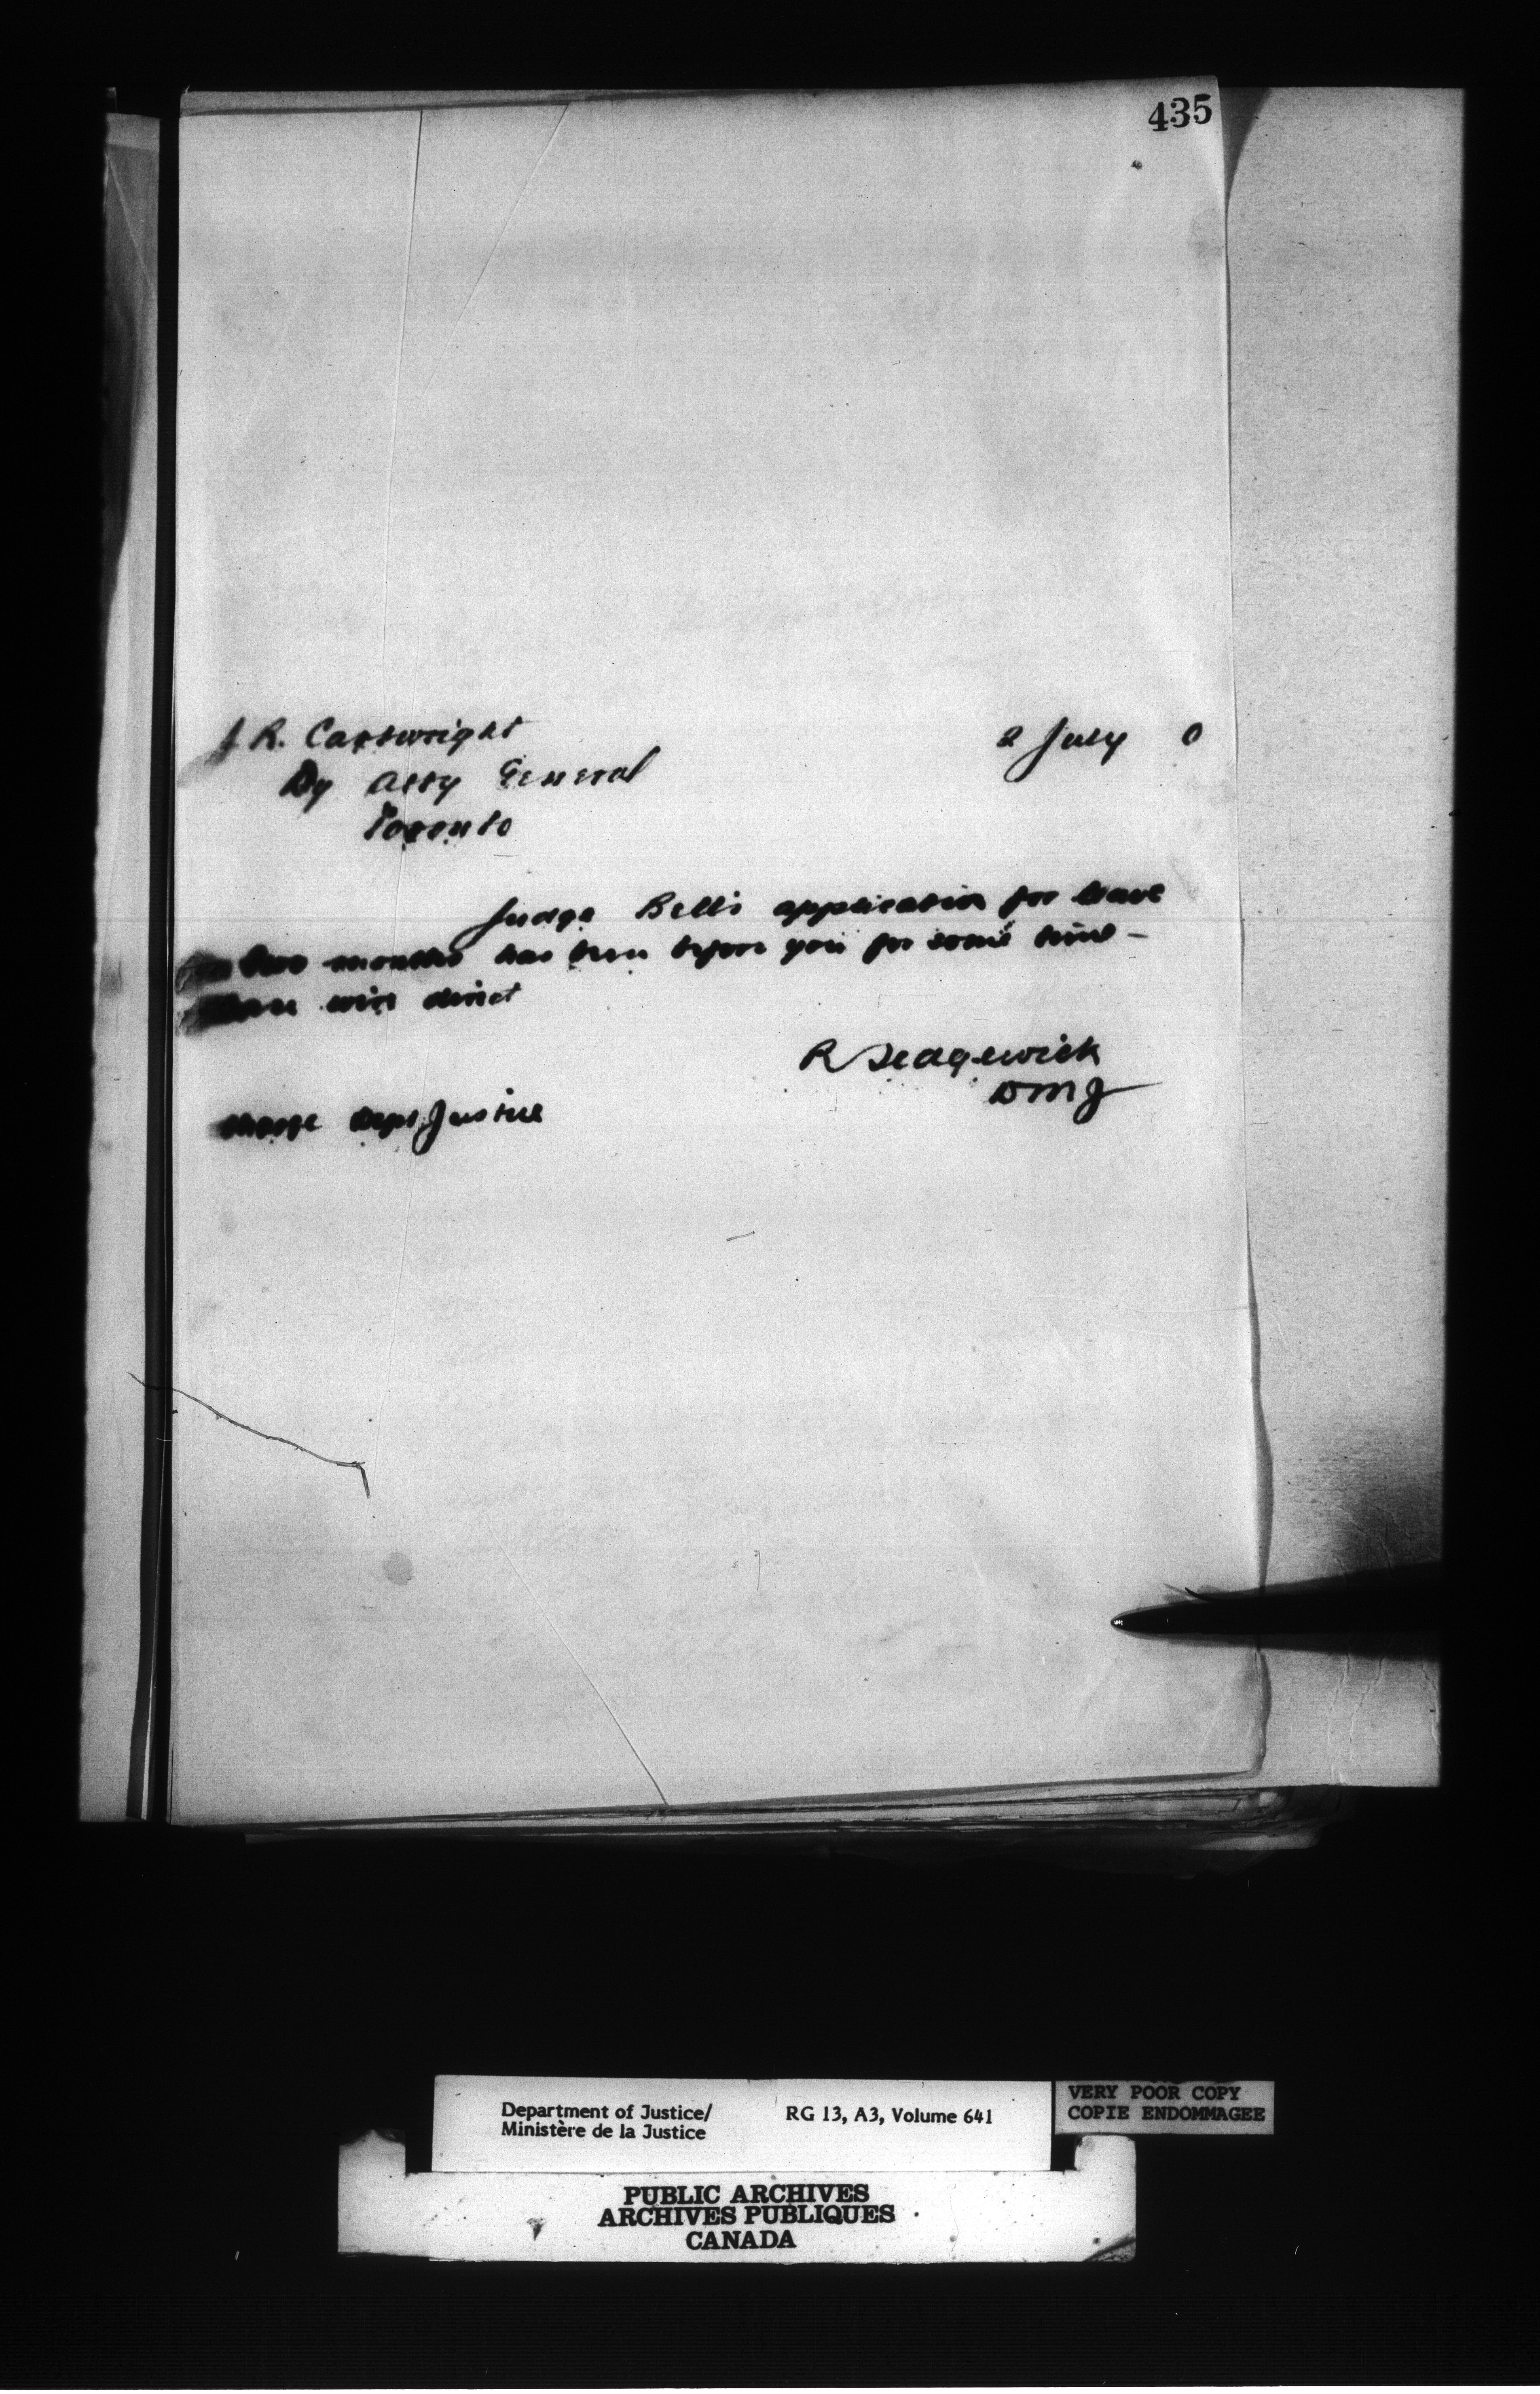 435
J R. Cartwright
2 July 0
Dy Atty General
Toronto
Judge Bell's application for leave
two months has been before you for some time -
wire direct
R Sedgewick
DMJ
charge Dept Justice
Department of Justice/
Ministère de la Justice
RG 13, A3, Volume 641
VERY POOR COPY
COPIE ENDOMMAGEE
PUBLIC ARCHIVES
ARCHIVES PUBLIQUES
CANADA